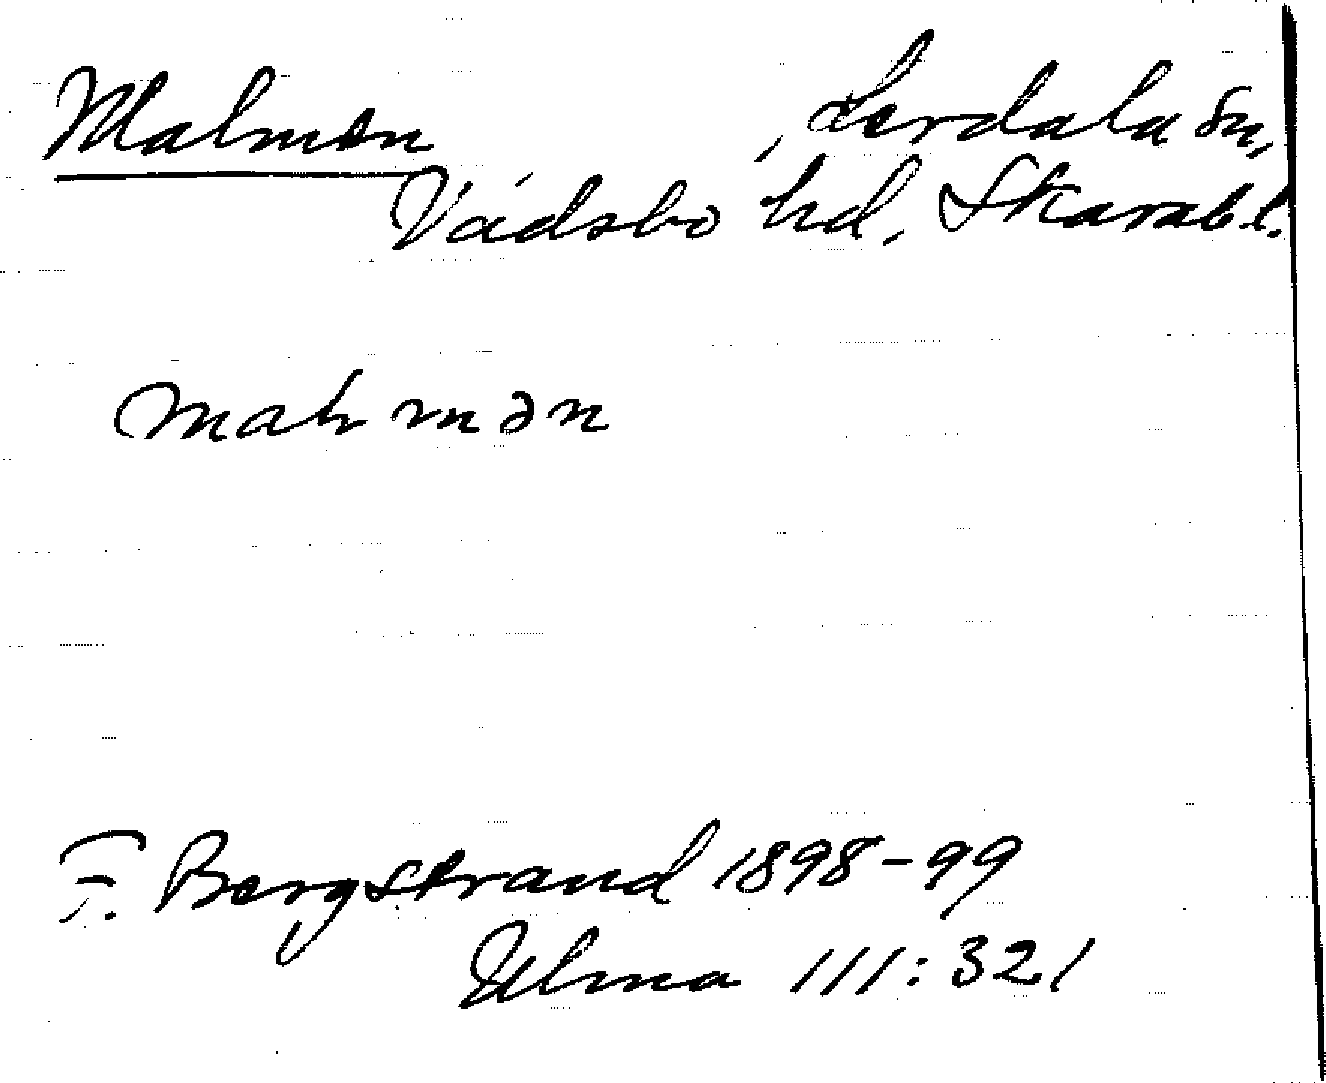 Malmen, Lerdala sn,
Vadsbo hd, Skarab.l.
malmən
F. Bergstrand 1898-99
Ulma 111:321